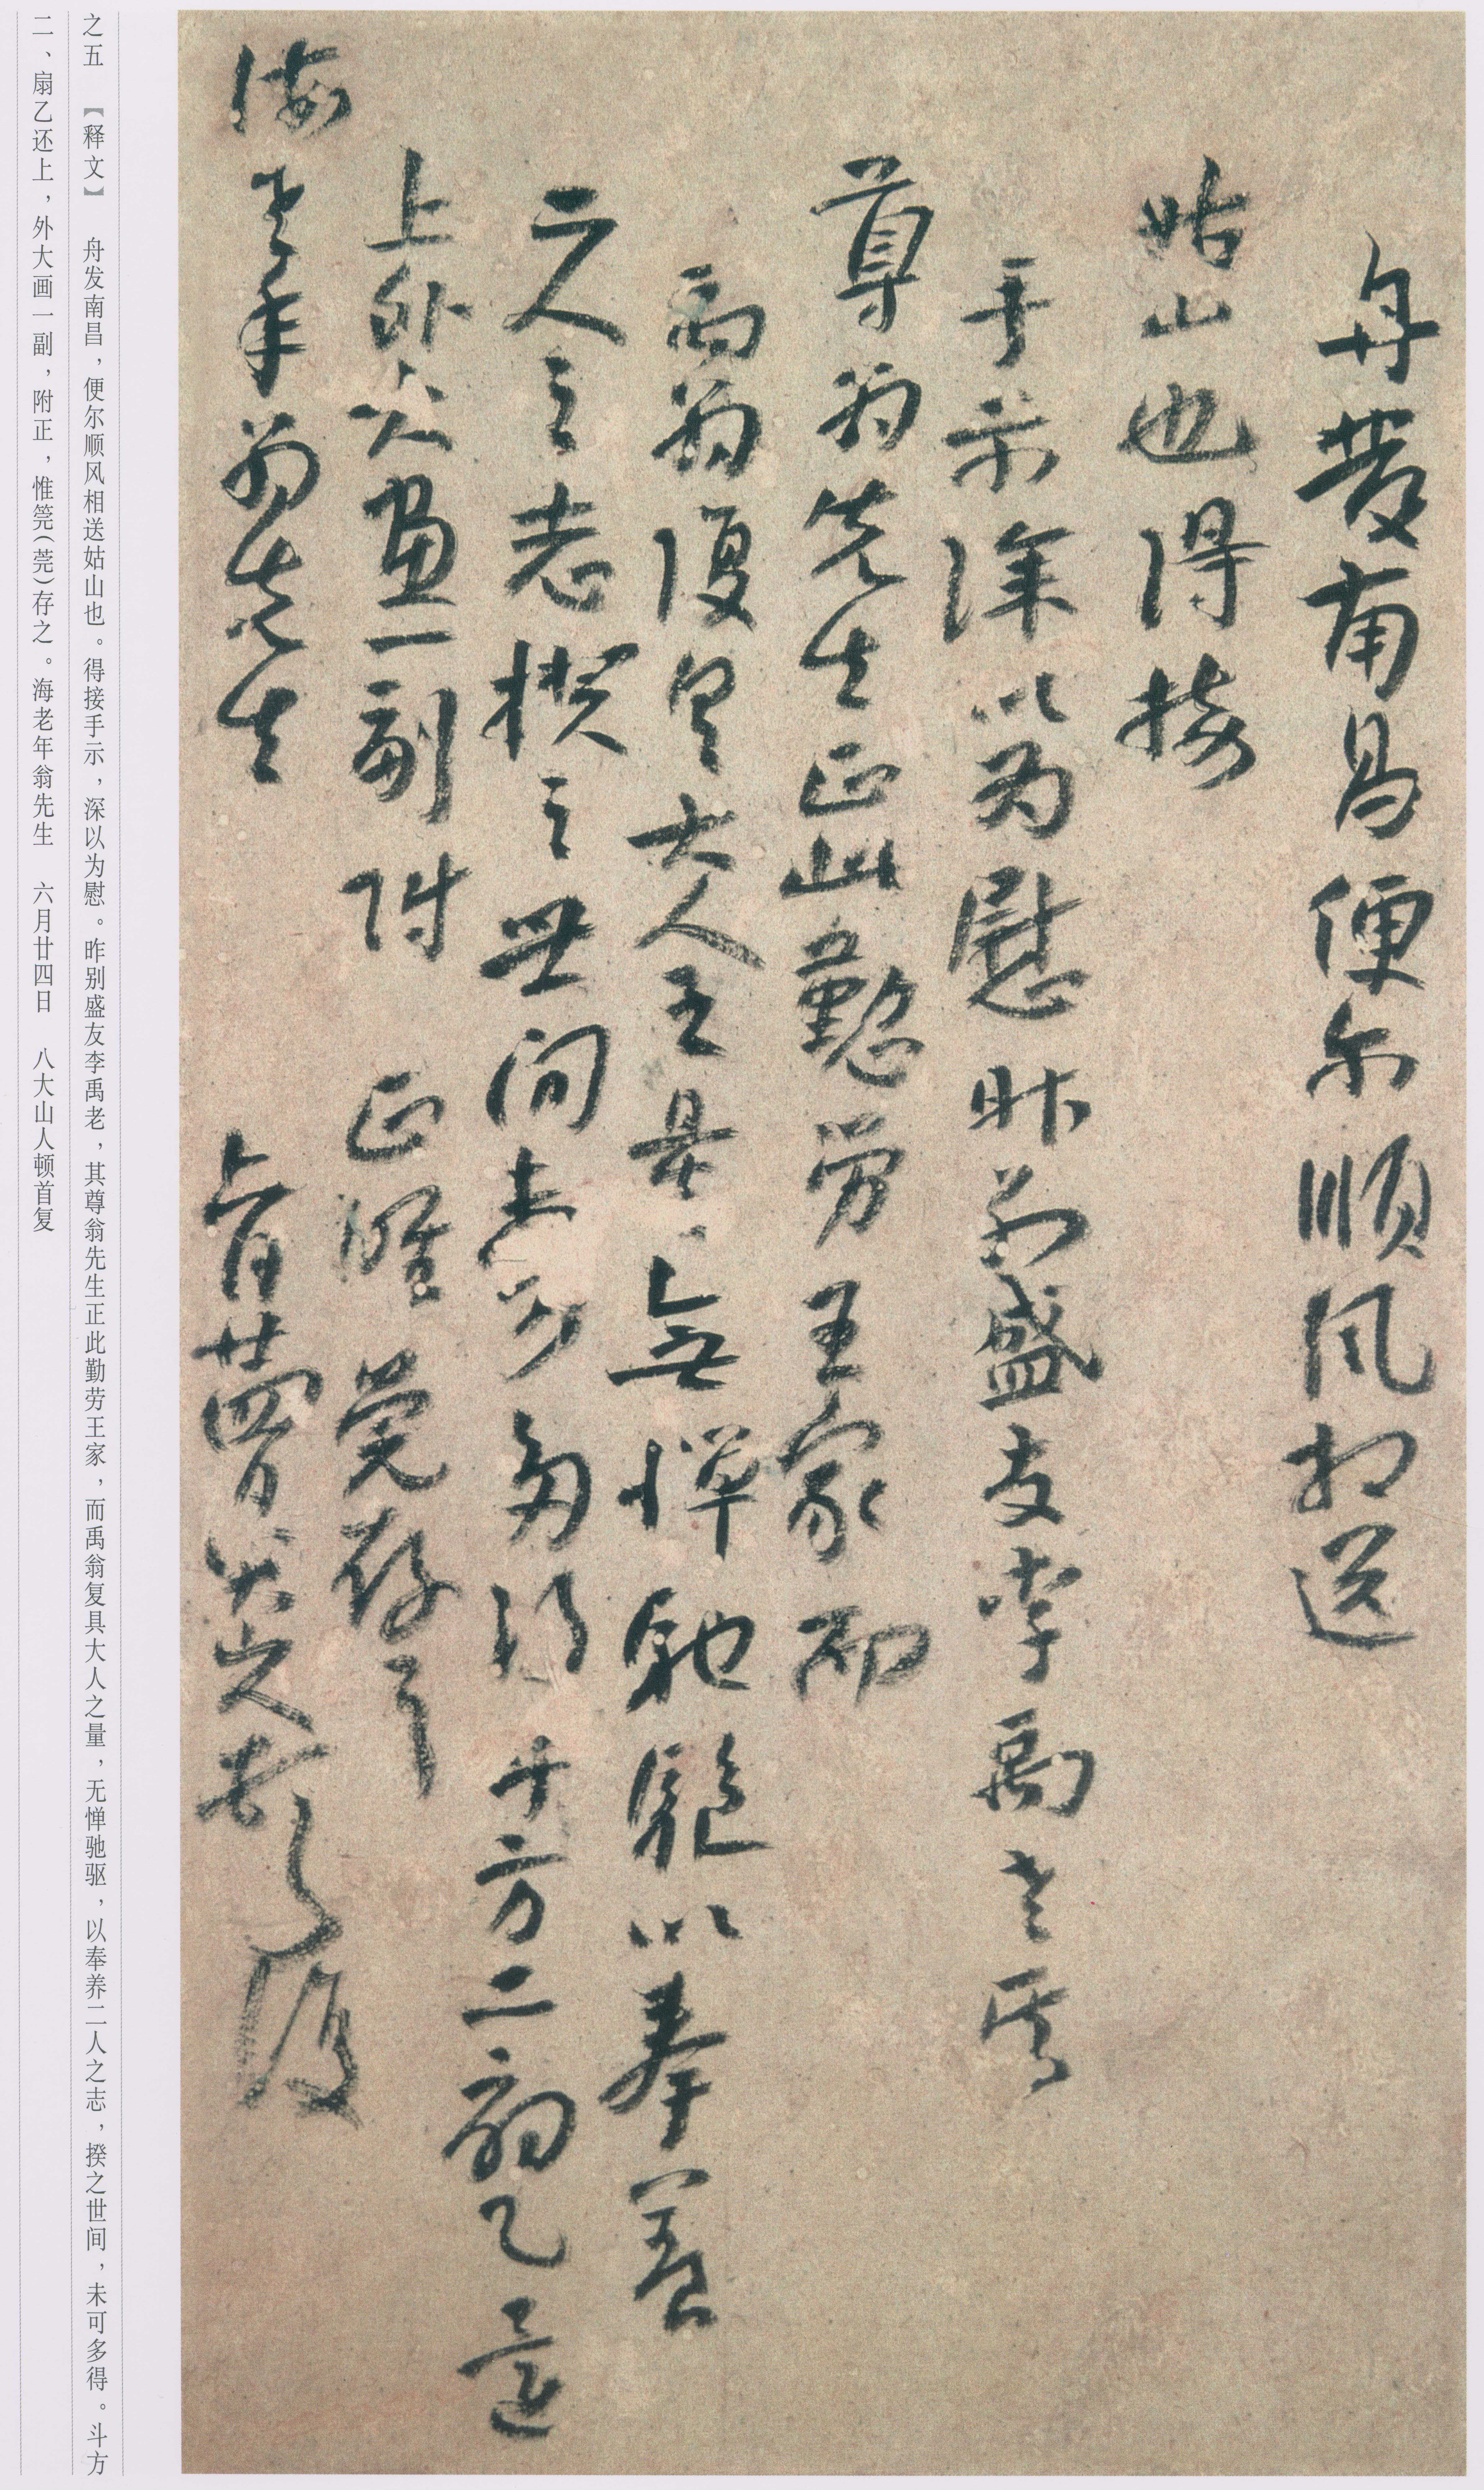 舟發南昌便尔順风相送
姑山也得接
手示深以為慰昨别盛友李禹老其
尊翁先生正此懃劳王家而
禹翁復具大人之量無惮馳驅以奉養
二人之志揆之世间未可多得斗方二扇乙還
上外大畫一副附 正惟莞存之
海老年翁先生 六月廿四日八大山人顿首復
之五 【释文】 舟发南昌，便尔顺风相送姑山也。得接手示，深以为慰。昨别盛友李禹老，其尊翁先生正此勤劳王家，而禹翁复具大人之量，无惮驰驱，以奉养二人之志，揆之世间，未可多得。斗方
二、扇乙还上，外大画一副，附正，惟筦（莞）存之。海老年翁先生 六月廿四日 八大山人顿首复